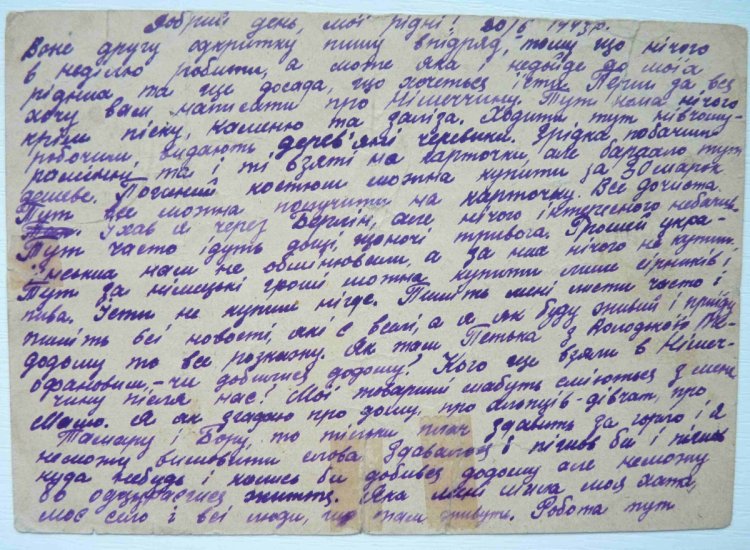 Добрий день, мої рідні! 20/6 1943 р.
Воне другу открытку пишу впідряд, тому що нічого
в неділлю робити, а може яка і недойде до моїх
рідних та ще досада, що хочеться їсти. Перш за все
хочу вам написати про Німеччину. Тут нема нічого
крім піску, каменю та заліза. Ходити тут нівчому-
робочим, видають дерев'яні черевики. Зрідка побачиш
рослину та і ті взяті на карточки, але барахло тут
дешеве. Поганий костюм можна купити за 30 марок
Тут все можна получити на карточку. Все дочиста.
Їхав я через Берлін, але нічого інтересного небачив.
Тут часто ідуть дощі, щоночі тривога. Грошей укра-
їнських нам не обмінювали, а за них нічого не купиш.
Тут за німецькі гроші можна купити лише сірників і
пива. Їсти не купиш нігде. Пишіть мені листи часто і
пишіть всі новості, які є в селі, а я як буду живий і прийду
додому то все розкажу. Як там Петька з Володькою
чи добилися додому? Кого ще взяли в Німеч-
чину після нас? Мої товариші мабуть сміються з мене
Машо. А як згадаю про дома, про хлопців-дівчат, про
Тамару і Бору, то тільки плач здавить за горло і я
неможу вимовити слова здавалося б пішов би і пішки
куда небудь і колись би добився додому але неможу
бо одцураєшся життя. Яка мені мила моя хата,
моє село і всі люди, що там живуть. Робота тут